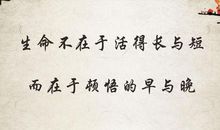 生命不在于活得长与短
而在于顿悟的早与晚